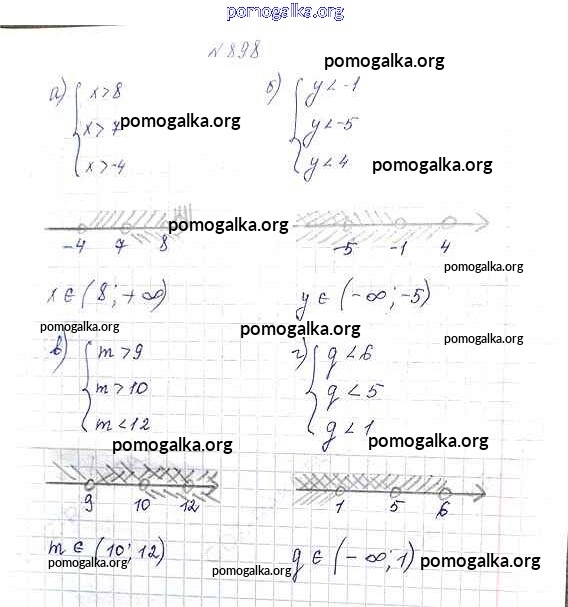 pomogalka.org
№898
pomogalka.org
а) { x>8
x>7 pomogalka.org
x>-4
б) { y<-1
y<-5
y<4 pomogalka.org
pomogalka.org
-4 7 8
-5 -1 4
pomogalka.org
x∈(8;+∞)
y∈(-∞;-5)
pomogalka.org pomogalka.org pomogalka.org
в) { m>9
m>10
m<12
г) { g<6
g<5
g<1
pomogalka.org pomogalka.org
9 10 12
1 5 6
m∈(10;12)
g∈(-∞;1) pomogalka.org
pomogalka.org pomogalka.org